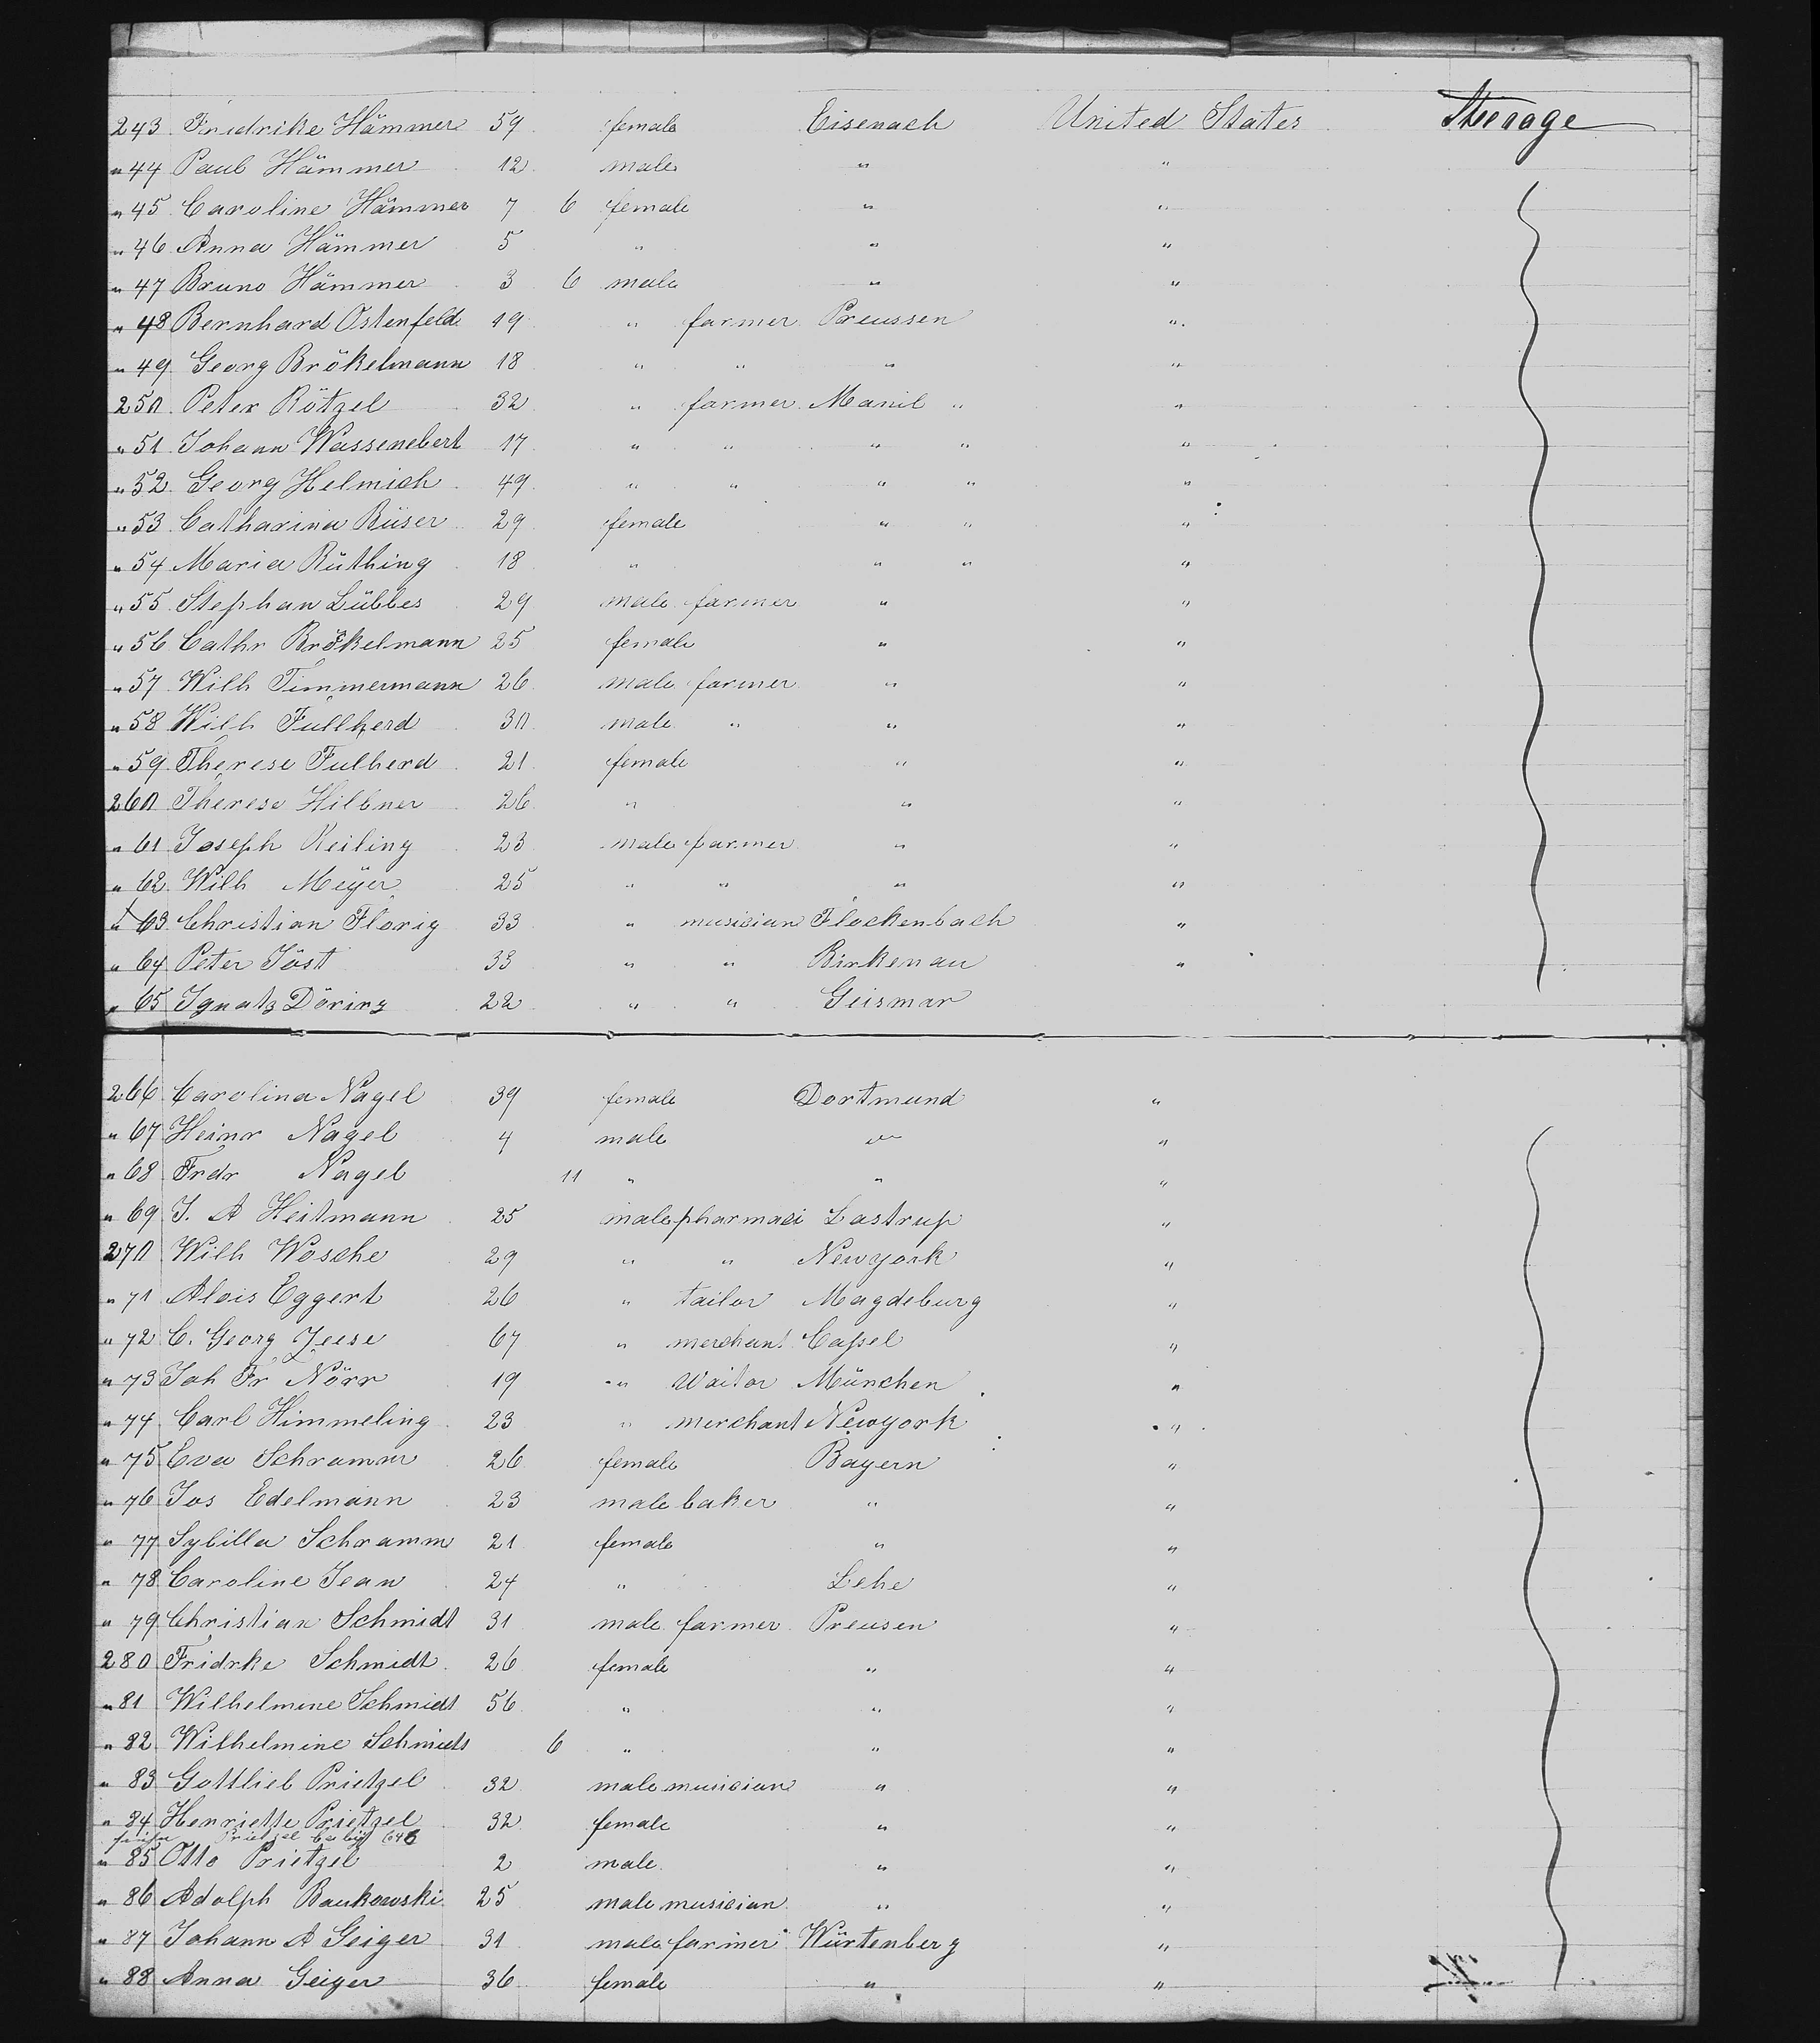 243 Fridrike Hämmer 59 female Eisenach United States Steerage
" 44 Paul Hämmer 12 male " "
" 45 Caroline Hämmer 7 6 female " "
" 46 Anna Hämmer 5 " " "
" 47 Bruno Hämmer 3 6 male " "
" 48 Bernhard Ostenfeld 19 " farmer Preussen "
" 49 Georg Brökelmann 18 " " " "
250 Peter Rötzel 32 " farmer Manil " "
" 51 Johann Wassenebert 17 " " " " "
" 52 Georg Helmich 49 " " " " "
" 53 Catharina Büser 29 female " " "
" 54 Maria Rüthing 18 " " " "
" 55 Stephan Lübbes 29 male farmer " "
" 56 Cathr Brökelmann 25 female " "
" 57 Wilh Timmermann 26 male farmer " "
" 58 Wilh Füllherd 30 male " " "
" 59 Therese Fulherd 21 female " "
260 Therese Hilbner 26 " " "
" 61 Joseph Reiling 23 male farmer " "
" 62 Wilh Meÿer 25 " " " "
" 63 Christian Florig 33 " musician Flockenbach "
" 64 Peter Jöst 33 " " Birkenau "
" 65 Ignatz Döring 22 " " Geismar
266 Carolina Nagel 39 female Dortmund "
" 67 Heinr Nagel 4 male " "
" 68 Frdr Nagel 11 " " "
" 69 J. A Heitmann 25 male pharmaci Lastrup "
270 Wilh Wosche 29 " " Newyork "
" 71 Alois Eggert 26 " tailor Magdeburg "
" 72 C. Georg Jeese 67 " merchant Caſsel "
" 73 Joh Fr Nörr 19 " Waitor München "
" 74 Carl Himmeling 23 " merchant Newyork "
" 75 Eva Schramm 26 female Bayern "
" 76 Jos Edelmann 23 male baker " "
" 77 Sybilla Schramm 21 female " "
" 78 Caroline Jean 24 " Lehe "
" 79 Christian Schmidt 31 male farmer Preusen "
280 Fridrke Schmidt 26 female " "
" 81 Wilhelmine Schmidt 56 " " "
" 82 Wilhelmine Schmidt 6 " " "
" 83 Gottlieb Prietzel 32 male musician " "
" 84 Henriette Prietzel 32 female " "
Prietzel baby
" 85 Otto Prietzel 2 male " "
" 86 Adolph Baukowski 25 male musician " "
" 87 Johann A Geiger 31 male farmer Würtenberg "
" 88 Anna Geiger 36 female " "